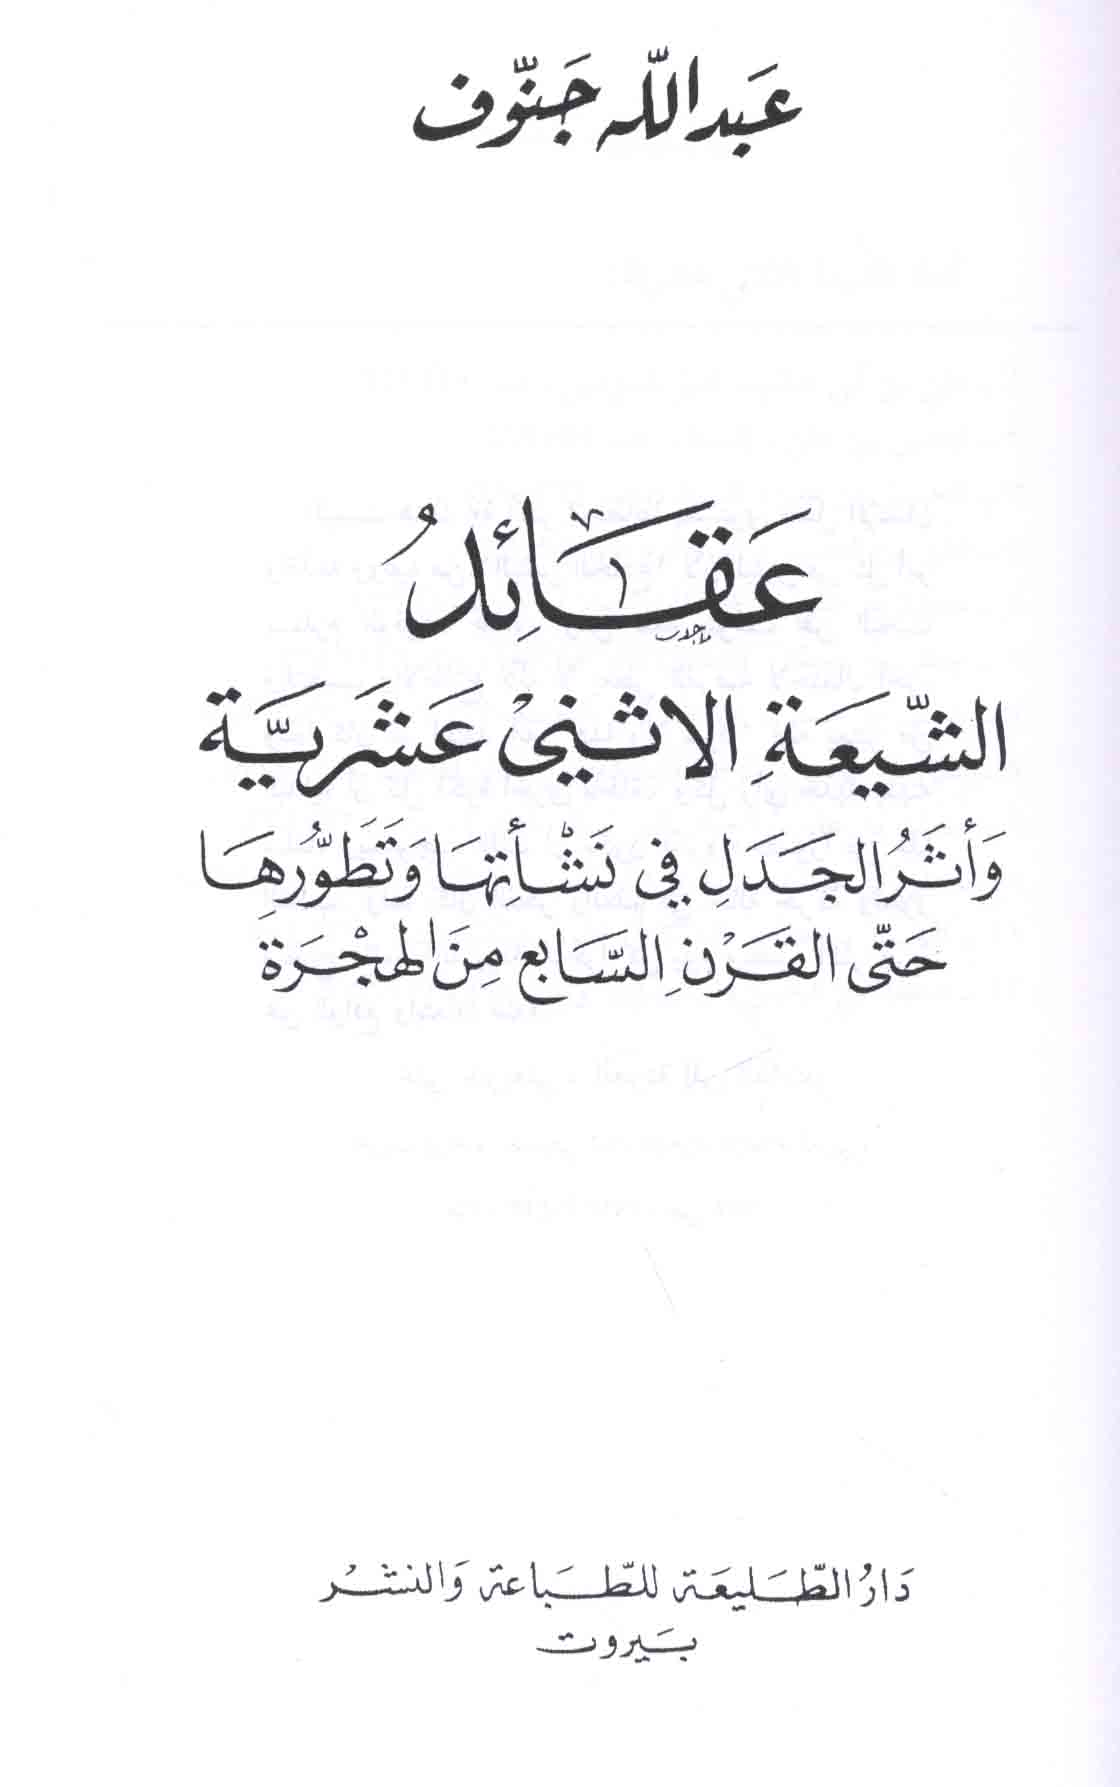 عَبد اللّه جَنّوف
عَقَائِدُ
الشّيعَةِ الاثنيْ عَشَريَّة
وَأثَرُ الجَدَلِ في نَشْأتهَا وَتَطَوُّرِهَا
حَتّى القَرْنِ السَّابع مِنَ الهِجْرَة
دَارُ الطَّليعَة للطّبَاعَة وَالنشْر
بَيروت